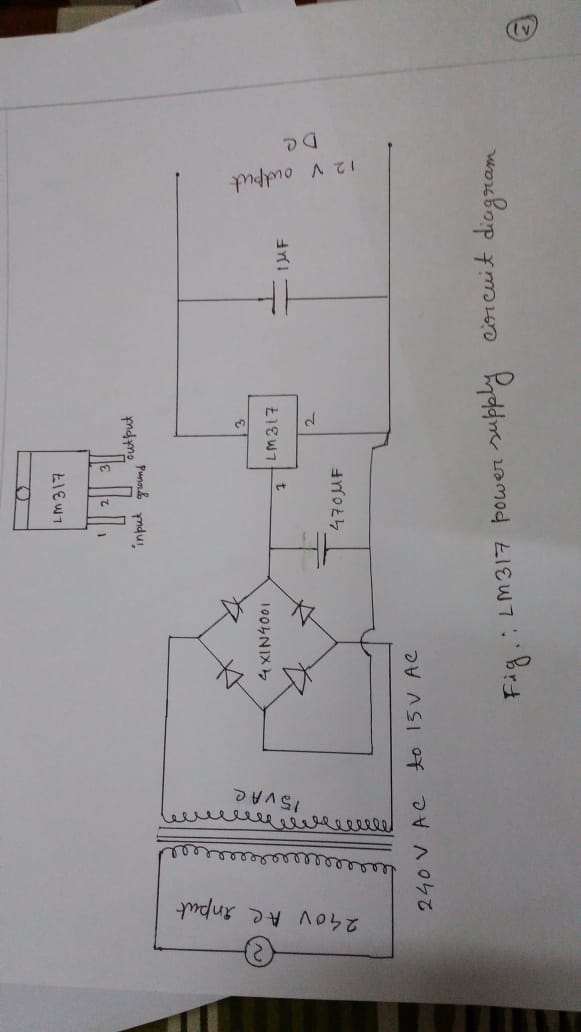 LM317
1 2 3
input ground output
240V AC input
15VAC
4X1N4001
1
LM317
3
2
470µF
1µF
12 V output
DC
240 V AC to 15V AC
Fig.: LM317 power supply circuit diagram